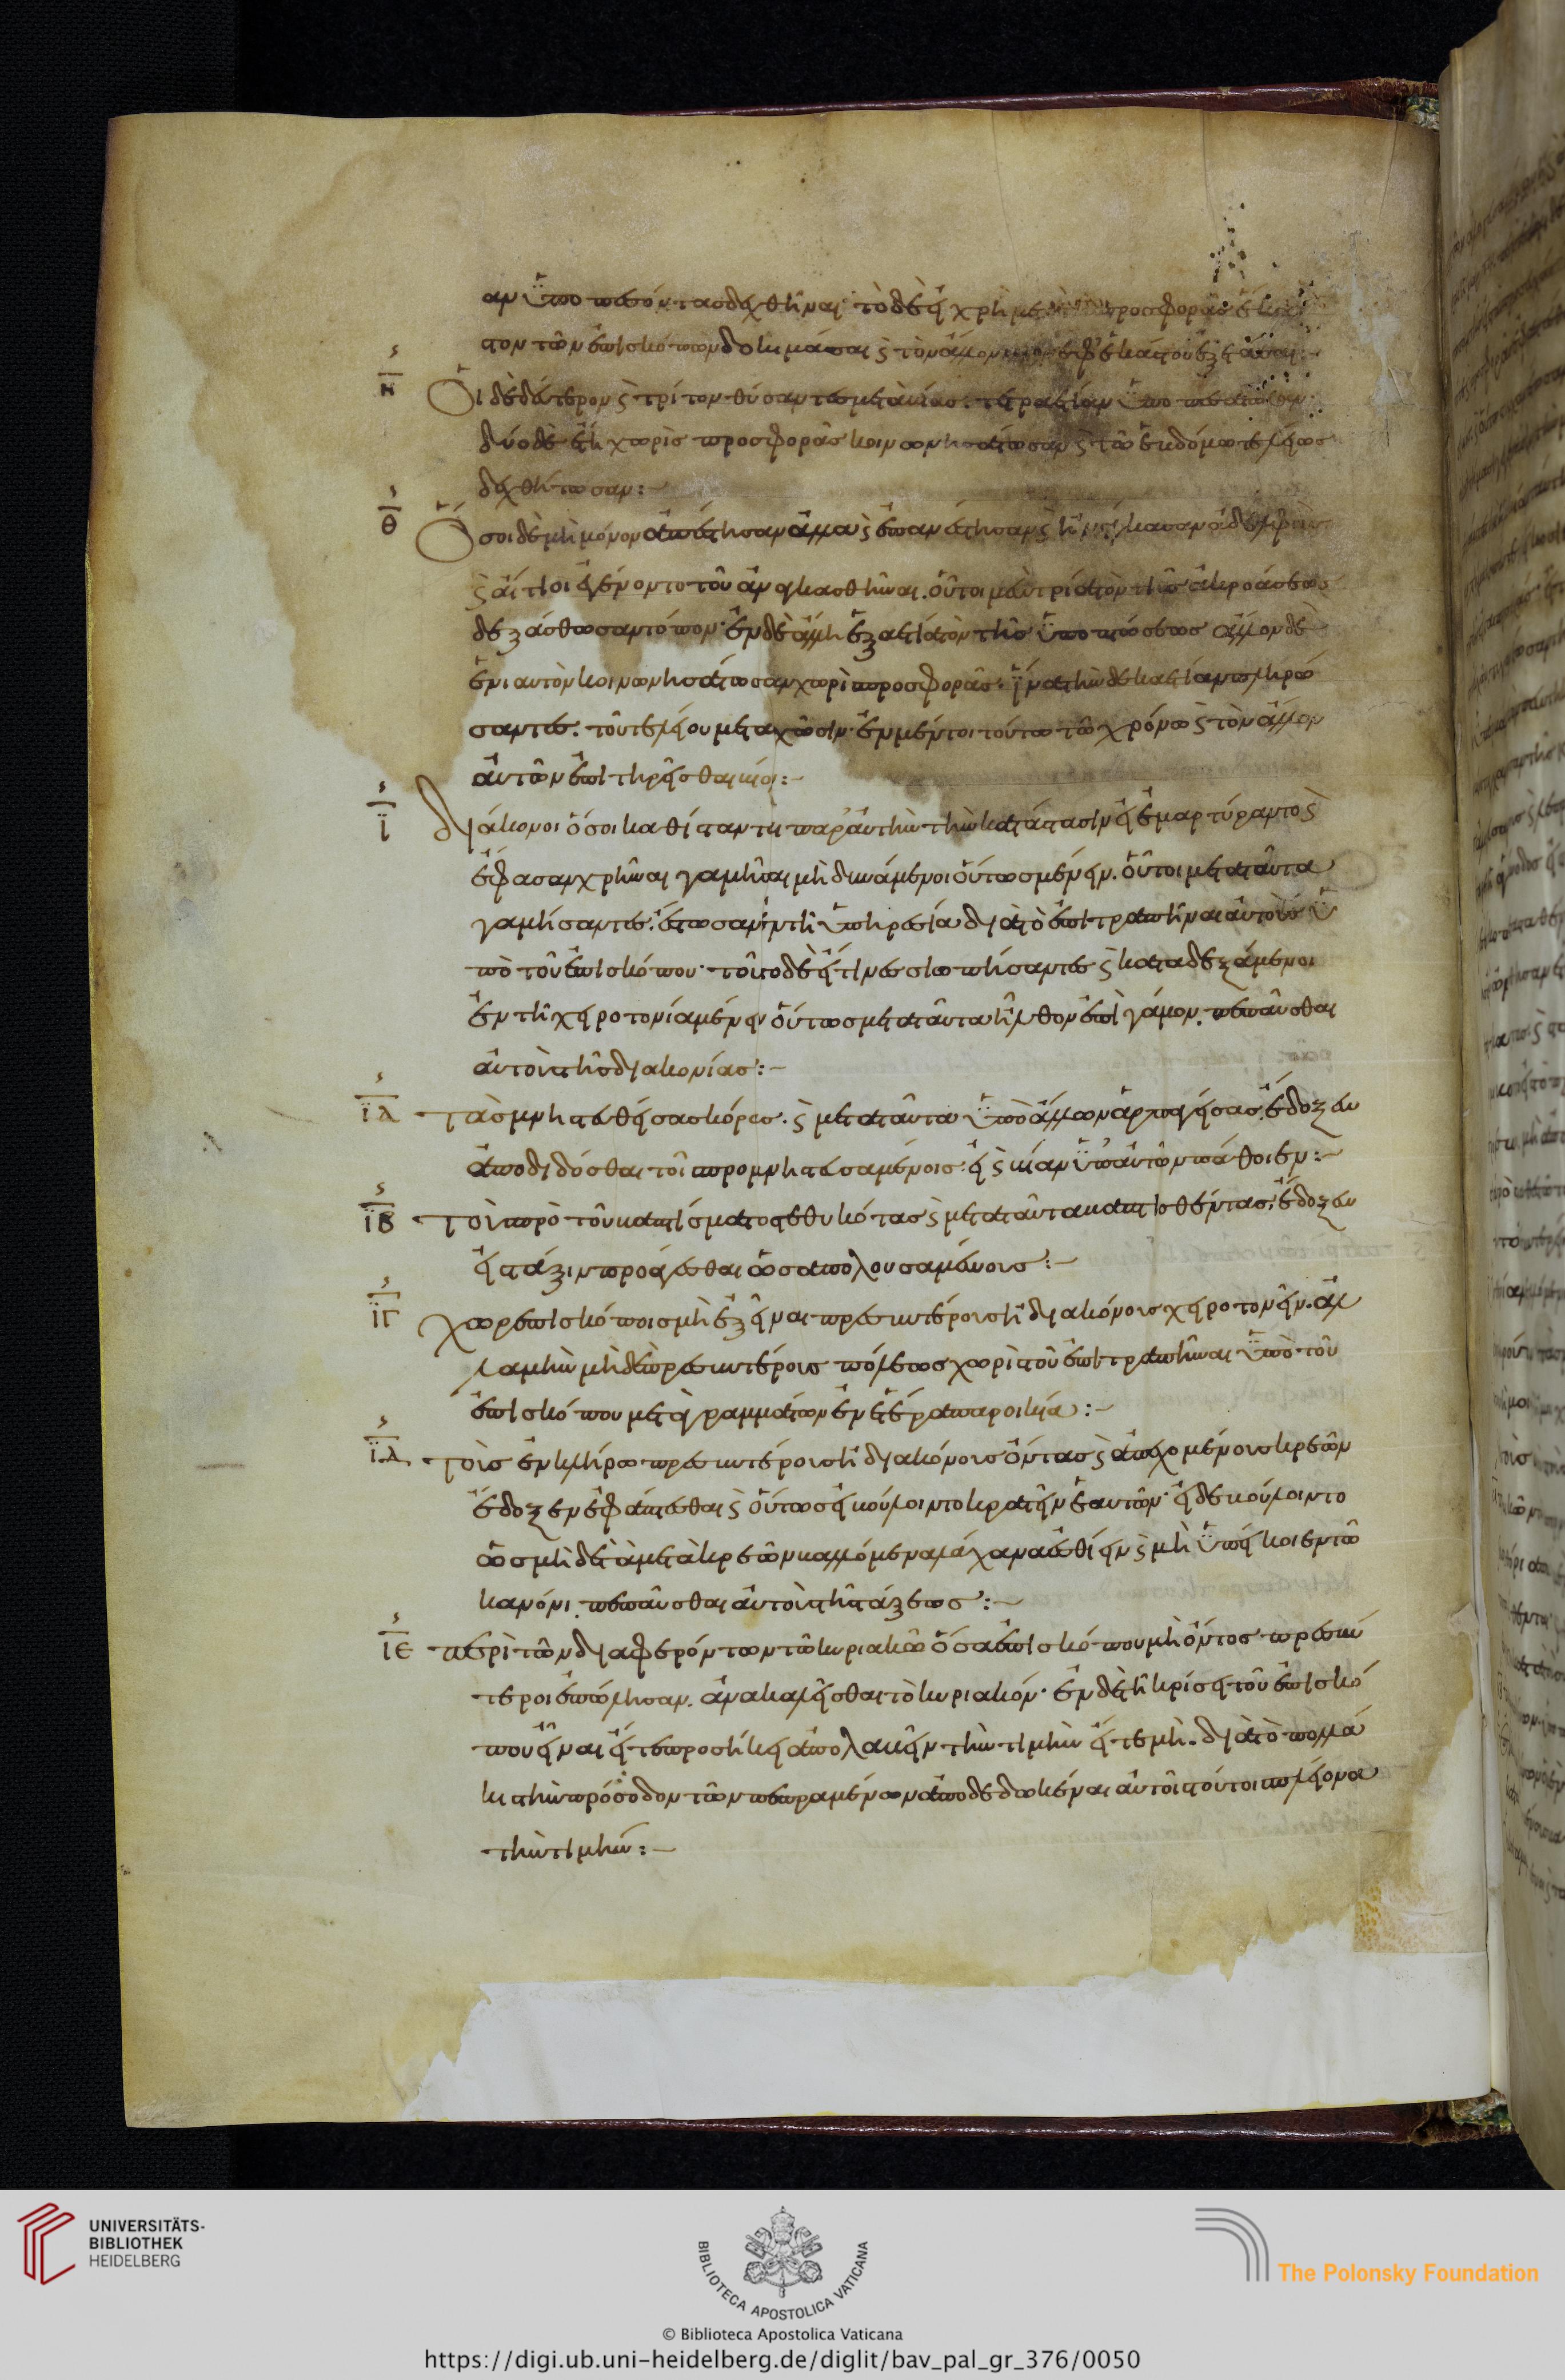 αν ὑποπεσόντας δεχθῆναι· τὸ δὲ εἰ χρὴ με προσφορᾶς ἕκασ
τον τῶν ἐπισκόπων δοκιμάσαι ϗ τὸν ἄλλον ἐφ' ἑκάστου ἐξετάσαι:-
Η Οἱ δὲ δεύτερον ϗ τρίτον θύσαντες μετὰ βίας· τετραετίαν ὑποπεσάτωσαν
δύο δὲ ἔτη χωρὶς προσφορᾶς κοινωνησάτωσαν ϗ τῶ ἑβδόμω τελείως
δεχθήτωσαν:-
Θ Ὅσοι δὲ μὴ μόνον ἀπέστησαν ἀλλὰ ϗ ἐπανέστησαν ϗ ἠνάγκασαν ἀδελφοὺς
ϗ αἴτιοι ἐγένοντο τοῦ ἀναγκασθῆναι. οὗτοι μὲν τρία ἔτη τὸν τῆς ἀκροάσεως
δεξάσθωσαν τόπον· ἐν δὲ ἄλλη ἑξαετία τὸν τῆς ὑποπτώσεως ἄλλον δὲ
ἐνιαυτὸν κοινωνησάτωσαν χωρὶς προσφορᾶς· ἵνα τὴν δεκαετίαν πληρώ
σαντες. τοῦ τελείου μετάσχωσιν· ἐν μέντοι τούτω τῶ χρόνω ϗ τὸν ἄλλον
αὐτῶν ἐπιτηρεῖσθαι βίον:-
Ϊ διάκονοι ὅσοι καθίστανται παρ' αὐτὴν τὴν κατάστασιν εἰ ἐμαρτύραντο ϗ
ἔφασαν χρῆναι γαμῆσαι μὴ δυνάμενοι οὕτως μένειν. οὗτοι μετὰ ταῦτα
γαμήσαντες. ἔστωσαν ἐν τῆ ὑπηρεσία διὰ τὸ ἐπιτραπῆναι αὐτοὺς ὑ
πὸ τοῦ ἐπισκόπου· τοῦτο δὲ εἴ τινες σιωπήσαντες ϗ καταδεξάμενοι
ἐν τῆ χειροτονία μένειν οὕτως μετὰ ταῦτα ἦλθον ἐπὶ γάμον. πεπαῦσθαι
αὐτοὺς τῆς διακονίας:-
ΪΑ Τὰς μνηστευθείσας κόρας. ϗ μετὰ ταῦτα ὑπὸ ἄλλων ἁρπαγείσας. ἔδοξεν
ἀποδίδοσθαι τοῖς προμνηστευσαμένοις· εἰ ϗ βίαν ὑπ' αὐτῶν πάθοιεν:-
ΪΒ Τοὺς πρὸ τοῦ βαπτίσματος τεθυκότας ϗ μετὰ ταῦτα βαπτισθέντας. ἔδοξεν
εἰς τάξιν προάγεσθαι ὡς ἀπολουσαμένους:-
ΪΓ Χωρεπισκόποις μὴ ἐξεῖναι πρεσβυτέρους ἢ διακόνους χειροτονεῖν. ἀλ
λὰ μὴν μὴδὲ πρεσβυτέροις πόλεως χωρὶς τοῦ ἐπιτραπῆναι ὑπὸ τοῦ
ἐπισκόπου μετὰ γραμμάτων ἐν ἑτέρα παροικία:-
ΪΔ Τοὺς ἐν κλήρω πρεσβυτέρους ἢ διακόνους ὄντας ϗ ἀπεχομένους κρεῶν
ἔδοξεν ἐφάπτεσθαι ϗ οὕτως εἰ βούλοιντο κρατεῖν ἑαυτῶν· εἰ δὲ βούλοιντο
ὡς μὴδὲ τὰ μετὰ κρεῶν βαλλόμενα λάχανα ἐσθίειν ϗ μὴ ὑπείκοιεν τῶ
κανόνι. πεπαῦσθαι αὐτοὺς τῆς τάξεως:-
ΙΕ περὶ τῶν διαφερόντων τῶ κυριακῶ ὅσα ἐπισκόπου μὴ ὄντος πρεσβύ
τεροι ἐπώλησαν. ἀνακαλεῖσθαι τὸ κυριακόν· ἐν δὲ τῆ κρίσει τοῦ ἐπισκό
που εἶναι εἴτε προσήκει ἀπολαβεῖν τὴν τιμὴν εἴτε μὴ. διὰ τὸ πολλά
κις τὴν πρόσοδον τῶν πεπραμένων ἀποδεδωκέναι αὐτοῖς τούτοις πλείονα
τὴν τιμήν:-
UNIVERSITÄTS-
BIBLIOTHEK
HEIDELBERG
BIBLIOTECA APOSTOLICA VATICANA
The Polonsky Foundation
© Biblioteca Apostolica Vaticana
https://digi.ub.uni-heidelberg.de/diglit/bav_pal_gr_376/0050